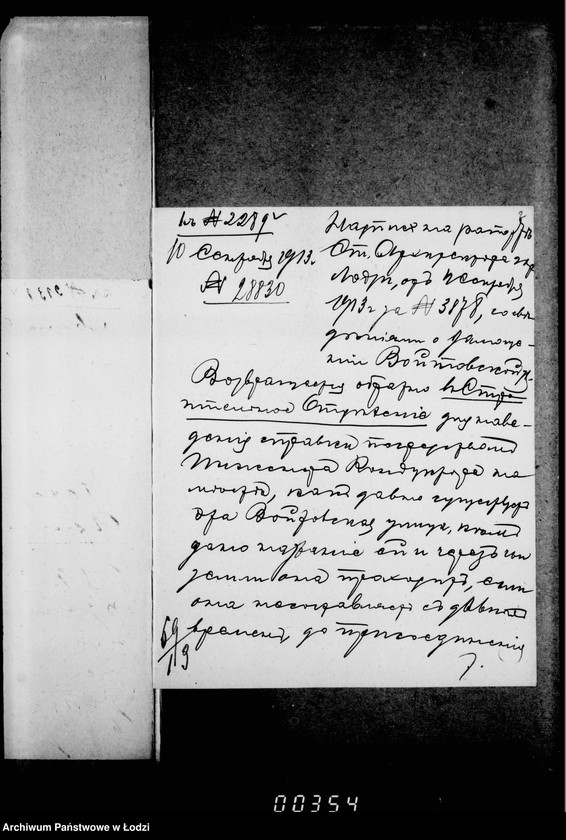 къ № 2289
10 Сентября 1913 г.
№ 28830
Надпись на рапортѣ
Ст. Архитектора гор.
Лодзи, отъ Сентября
1913 г за № 3878, со свѣ
дѣніями о замоще-
ніи Войтовской
Возвращая обратно въ Строи
тельное Отдѣленіе для наве-
денія справки посредствомъ
Инженера Кондуктора на
мѣстѣ, какъ давно существуетъ
эта Войтовская улица, кѣмъ
дано названіе ей и черезъ чьи
земли она проходитъ, если
она составляетъ съ давнихъ
времени, до присоединенія
69/13
00354
Archiwum Państwowe w Łodzi